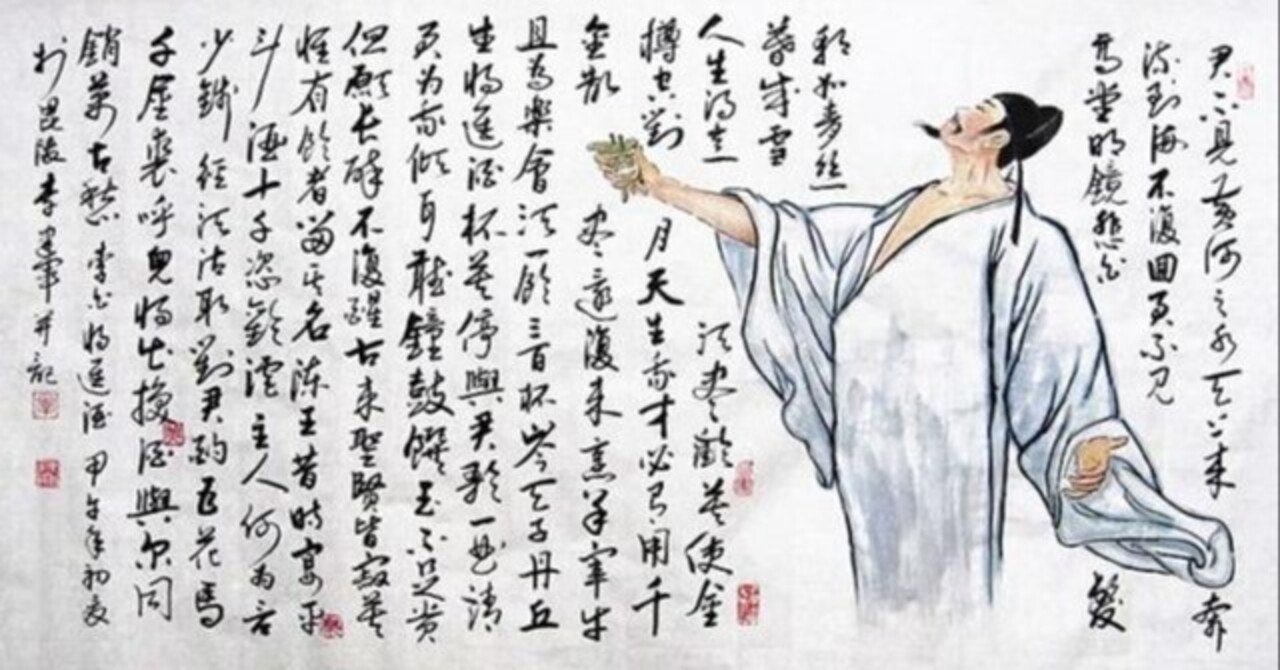 君不見黃河之水天上来奔
流到海不復回君不見
高堂明鏡悲白髮
朝如青丝
暮成雪
人生得意須尽歡莫使金
樽空對月天生我才必有用千
金散尽還復来烹羊宰牛
且為樂會須一飲三百杯岑夫子丹丘
生将進酒杯莫停與君歌一曲请
君为我傾耳聽鐘鼓饌玉不足贵
但願長醉不復醒古来聖賢皆寂莫
惟有飲者留其名陳王昔時宴平
斗酒十千恣歡谑主人何为言
少錢徑須沽取對君酌五花馬
千金裘呼兒将出換酒與尔同
銷萬古愁 李白将進酒 甲午年初夏
于毘陵李軍并記